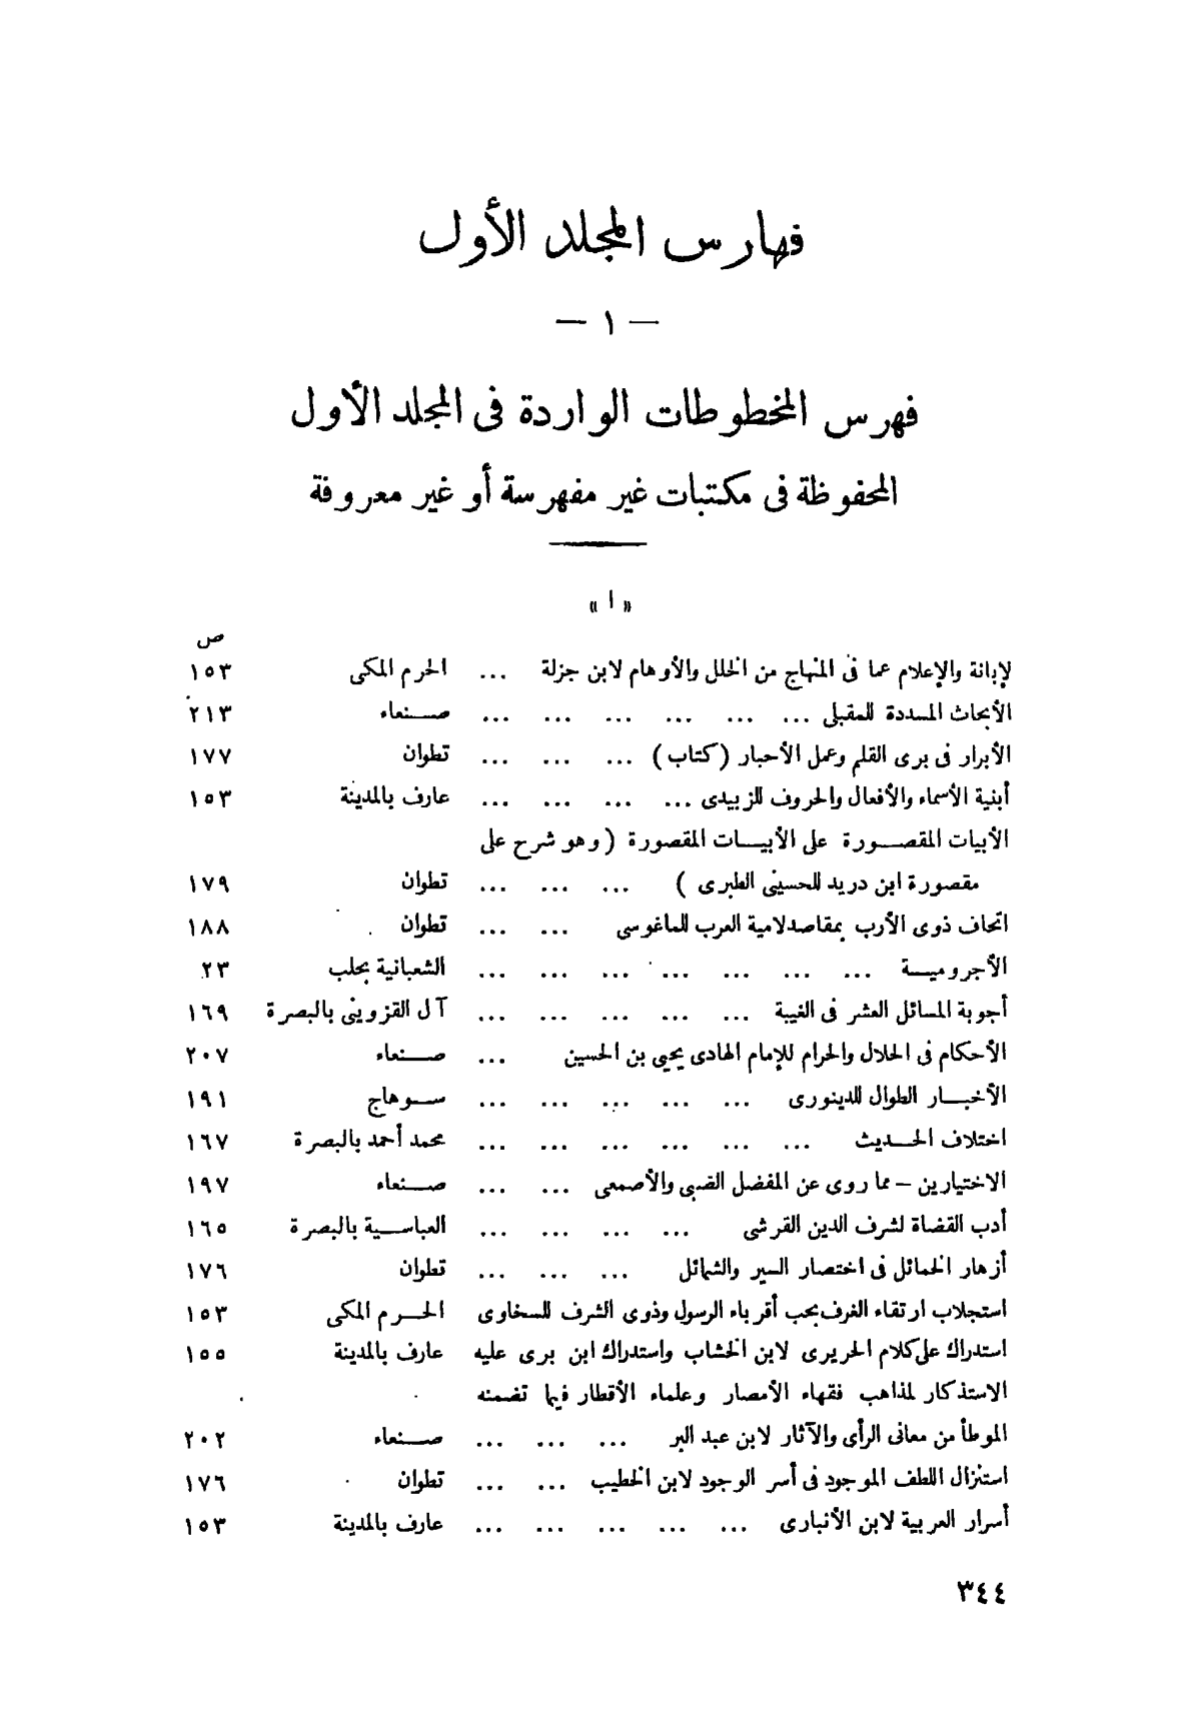 فهارس المجلد الأول
— ١ —
فهرس المخطوطات الواردة فى المجلد الأول
المحفوظة فى مكتبات غير مفهرسة أو غير معروفة
« ا »
ص
لإبانة والإعلام عما فى المنهاج من الخلل والأوهام لابن جزلة ... الحرم المكى ١٥٣
الأبحاث المسددة للمقبلى ... ... ... ... ... ... صنعاء ٢١٣
الأبرار فى برى القلم وعمل الأحبار (كتاب) ... ... ... تطوان ١٧٧
أبنية الأسماء والأفعال والحروف للزبيدى ... ... ... ... عارف بالمدينة ١٥٣
الأبيات المقصورة على الأبيات المقصورة ( وهو شرح على
مقصورة ابن دريد للحسينى الطبرى ) ... ... ... تطوان ١٧٩
اتحاف ذوى الأرب بمقاصد لامية العرب للماغوسى ... ... تطوان ١٨٨
الأجرومية ... ... ... ... ... ... ... الشعبانية بحلب ٢٣
أجوبة المسائل العشر فى الغيبة ... ... ... ... ... آل القزوينى بالبصرة ١٦٩
الأحكام فى الحلال والحرام للإمام الهادى يحيى بن الحسين ... صنعاء ٢٠٧
الأخبار الطوال للدينورى ... ... ... ... ... سوهاج ١٩١
اختلاف الحديث ... ... ... ... ... ... محمد أحمد بالبصرة ١٦٧
الاختيارين – مما روى عن المفضل الضبى والأصمعى ... ... صنعاء ١٩٧
أدب القضاة لشرف الدين القرشى ... ... ... ... العباسية بالبصرة ١٦٥
أزهار الخمائل فى اختصار السير والشمائل ... ... ... تطوان ١٧٦
استجلاب ارتقاء الغرف بحب أقرباء الرسول وذوى الشرف للسخاوى الحرم المكى ١٥٣
استدراك على كلام الحريرى لابن الخشاب واستدراك ابن برى عليه عارف بالمدينة ١٥٥
الاستذكار لمذاهب فقهاء الأمصار وعلماء الأقطار فيما تضمنه
الموطأ من معانى الرأى والآثار لابن عبد البر ... ... ... صنعاء ٢٠٢
استنزال اللطف الموجود فى أسر الوجود لابن الخطيب ... ... تطوان ١٧٦
أسرار العربية لابن الأنبارى ... ... ... ... ... عارف بالمدينة ١٥٣
٣٤٤